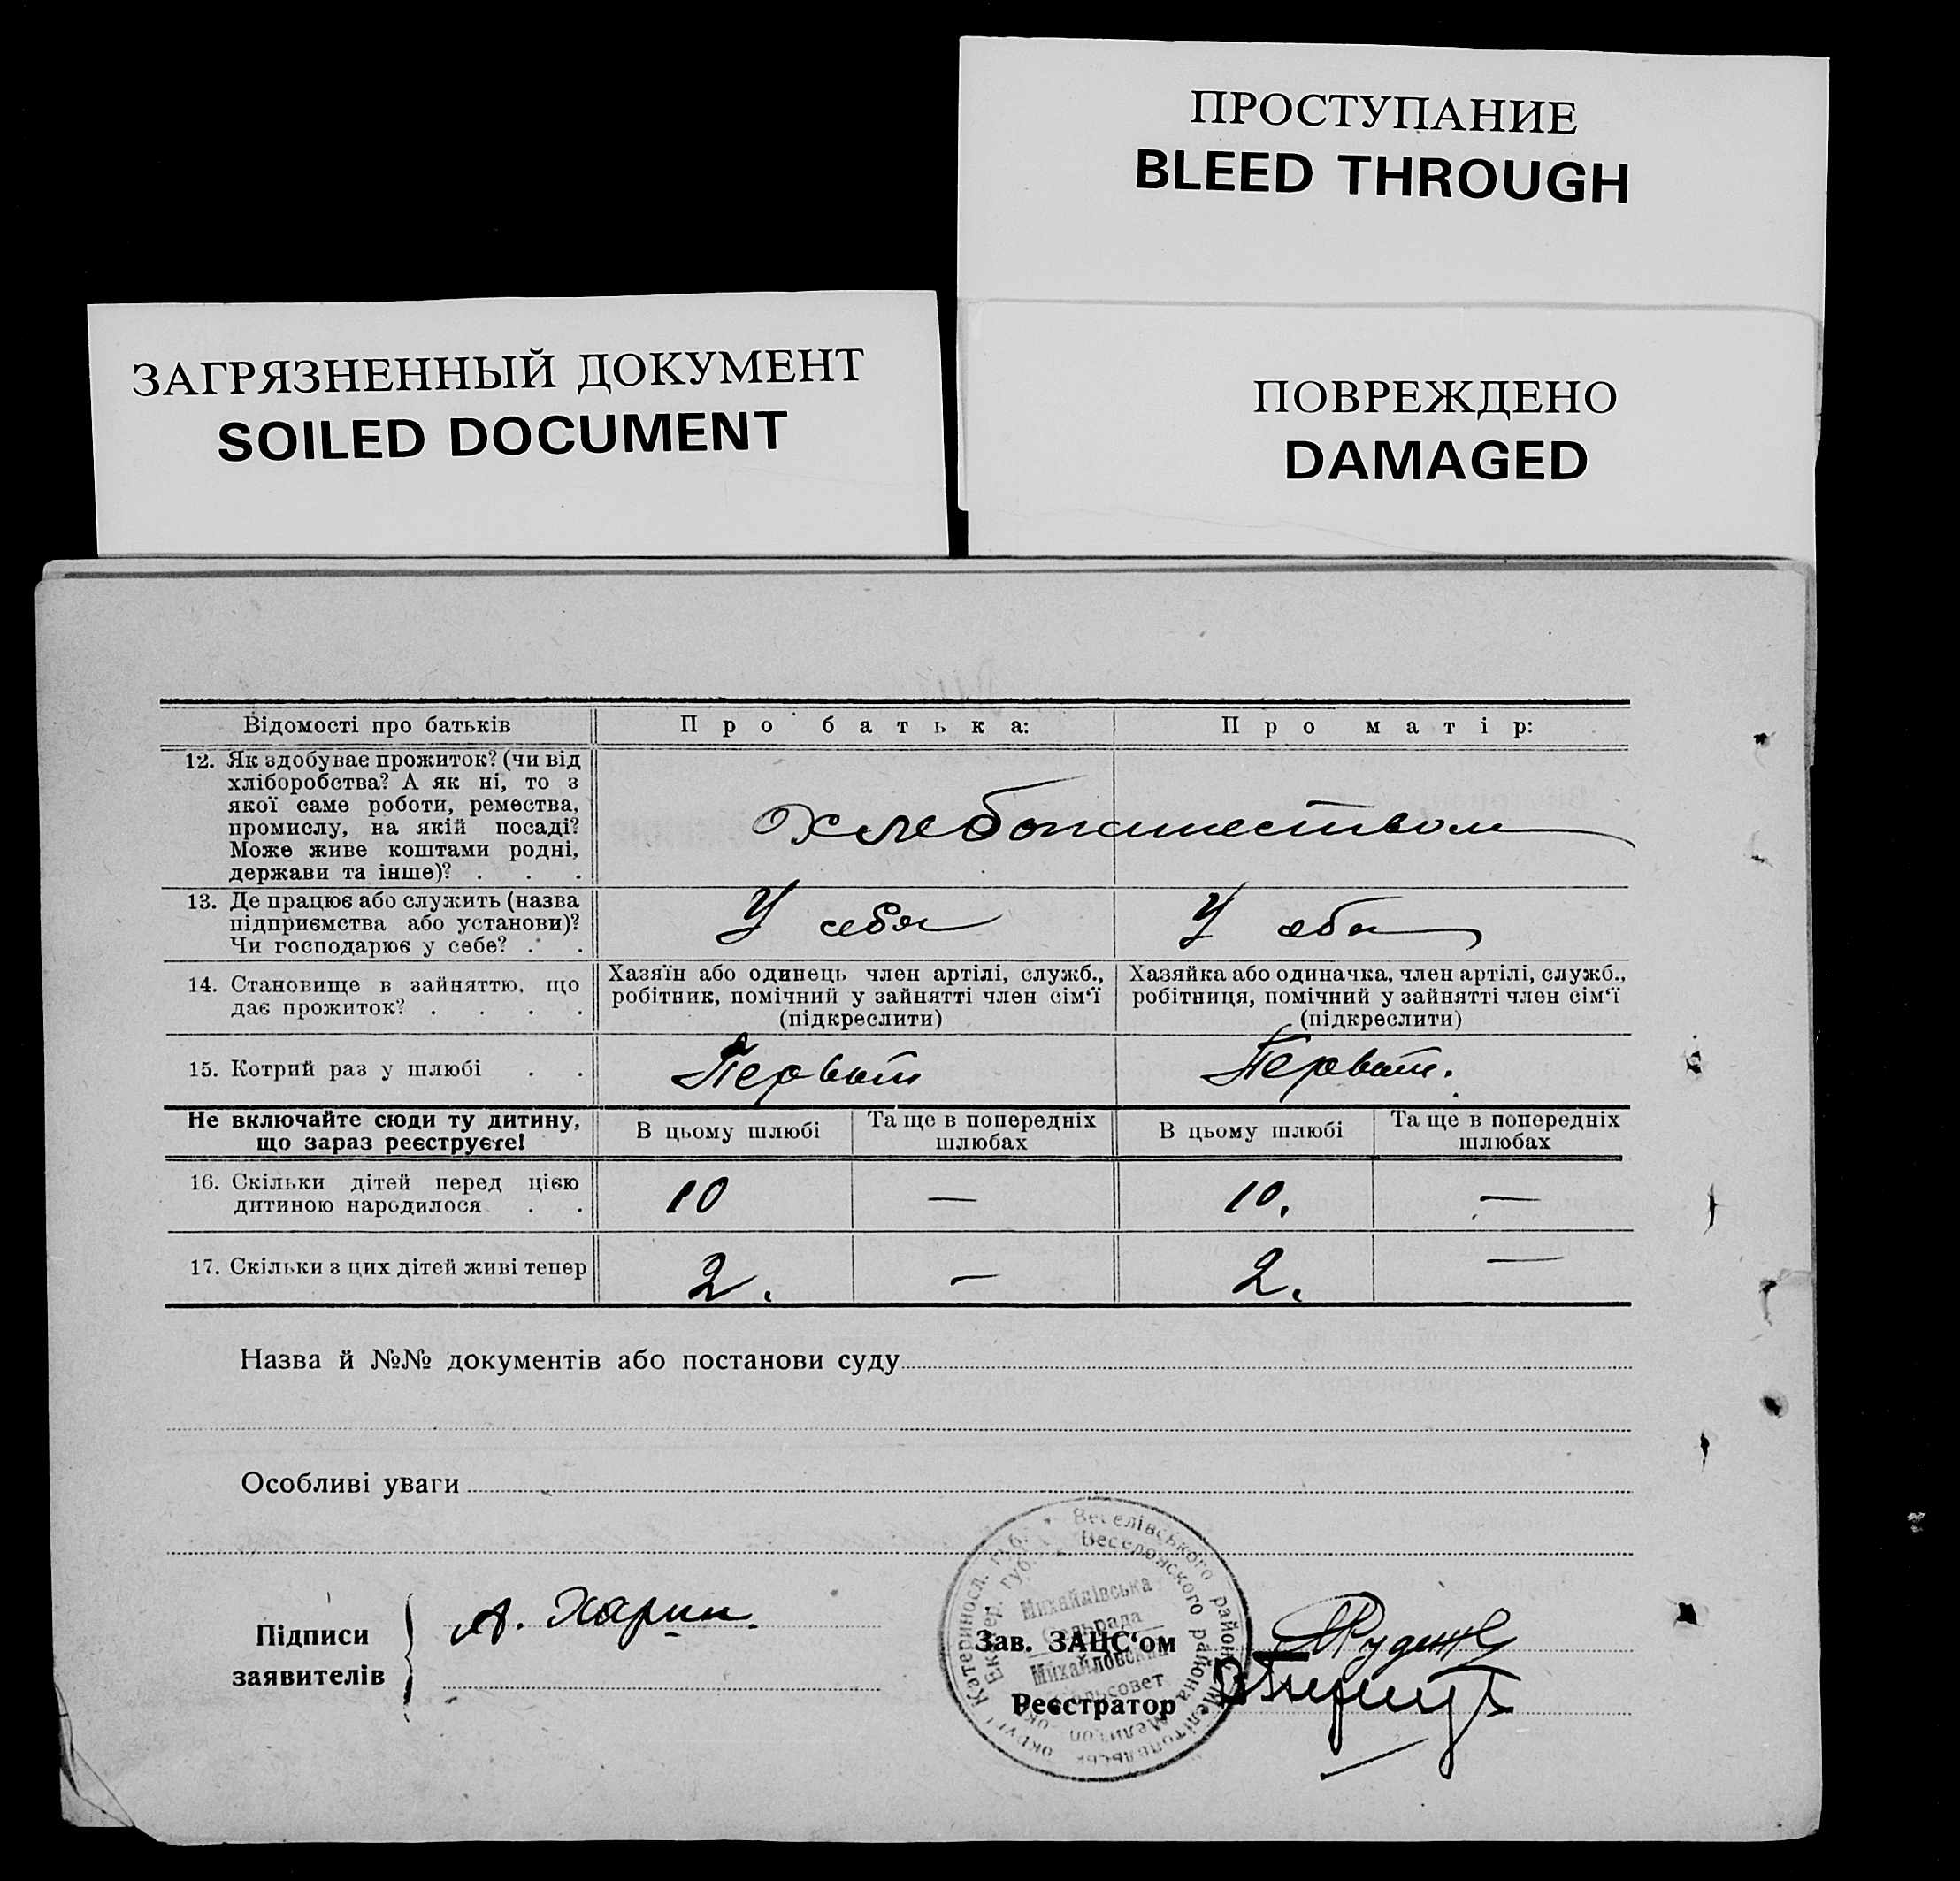 ПРОСТУПАНИЕ
BLEED THROUGH
ЗАГРЯЗНЕННЫЙ ДОКУМЕНТ
SOILED DOCUMENT
ПОВРЕЖДЕНО
DAMAGED
Відомості про батьків
Про батька:
Про матір:
12. Як здобуває прожиток? (чи від
хліборобства? А як ні, то з
якої саме роботи, ремества,
промислу, на якій посаді?
Може живе коштами родні,
держави та інше)? . . .
Хлебопашеством
13. Де працює або служить (назва
підприємства або установи)?
Чи господарює у себе? . .
У себя
У себя
14. Становище в зайняттю, що
дає прожиток? . . . .
Хазяїн або одинець член артілі, служб.,
робітник, помічний у зайнятті член сім‘ї
(підкреслити)
Хазяйка або одиначка, член артілі, служб.,
робітниця, помічний у зайнятті член сім‘ї
(підкреслити)
15. Котрий раз у шлюбі . .
Первый
Первый.
Не включайте сюди ту дитину,
що зараз реєструєте!
В цьому шлюбі
Та ще в попередніх
шлюбах
В цьому шлюбі
Та ще в попередніх
шлюбах
16. Скільки дітей перед цією
дитиною народилося . .
10 — 10. —
17. Скільки з цих дітей живі тепер
2. — 2. —
Назва й №№ документів або постанови суду
Особливі уваги
Підписи
заявителів
А. Харин.
Зав. ЗАЦС‘ом
Реєстратор
Катериносл. губ. Веселівського району Мелітопольськ округи
Екатер. губ. Веселовского района Мелитоп. окр.
Михайлівська
сільрада
Михайловский
сельсовет